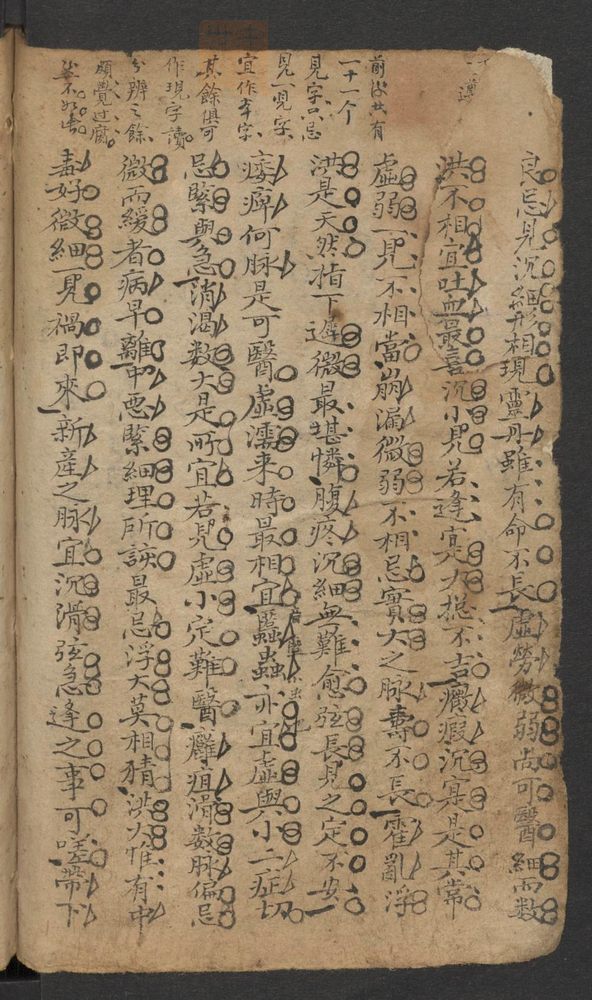 前後共有
一十一个
見字只忌
見一見字
宜作本字
其餘俱可
作現字讀
分辨之餘
頗覺迂腐
良忌見沉細形相現靈丹雖有命不長虛勞微弱尚可醫細而數
洪不相宜吐血最喜沉小見若逢寔大搃不吉癥瘕沉寔是其常
虛弱一見不相當崩漏微弱不相忌實大之脉壽不長霍亂浮
洪是天然指下遲微最堪憐腹疼沉細無難愈弦長見之定不安
痿痺何脉是可醫虛濡来時最相宜䘌蟲亦宜虛與小二症切
忌緊與急消渴数大是所宜若見虛小定難醫癰疽滑数脉偏忌
微而緩者病早離中惡緊細理所該最忌浮大莫相猜洪大惟有中
毒好微細一見禍即來新産之脉宜沉滑弦急逢之事可嗟帶下